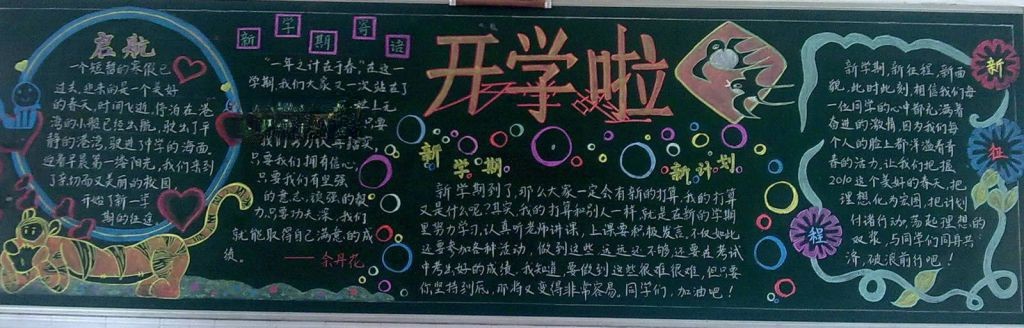 启航
一个短暂的寒假已
过去,迎来的是一个美好
的春天,时间飞逝,停泊在港
湾的小船已经出航,驶出了平
静的港湾,驶进冲学的海面,
迎着早晨第一缕阳光,我们来到
了亲切而又美丽的校园,
开始了新一学
期的征途
新学期寄语
"一年之计在于春,"在这一
学期,我们大家又一次站在了
只要
只要我们拥有信心,
只要我们有坚强
的意志,顽强的毅
力,只要功夫深,我们
就能取得自己满意的成
绩。
——余丹花
开学啦
新学期 新计划
新学期到了,那么大家一定会有新的打算,我的打算
又是什么呢?其实,我的打算和别人一样,就是在新的学期
里努力学习,认真听老师讲课,上课要积极发言,不仅如此
还要参加各种活动,做到这些远远还不够,还要在考试
中考出好的成绩,我知道,要做到这些很难很难,但只要
你坚持到底,那将又变得非常容易,同学们,加油吧!
新征程
新学期,新征程,新面
貌,此时此刻,相信我们每
一位同学的心中都充满着
奋进的激情,因为我们每
个人的脸上都洋溢着青
春的活力,让我们把握
2010这个美好的春天,把
理想化为宏图,把计划
付诸行动,荡起理想的
双桨,与同学们同舟共
济,破浪前行吧!